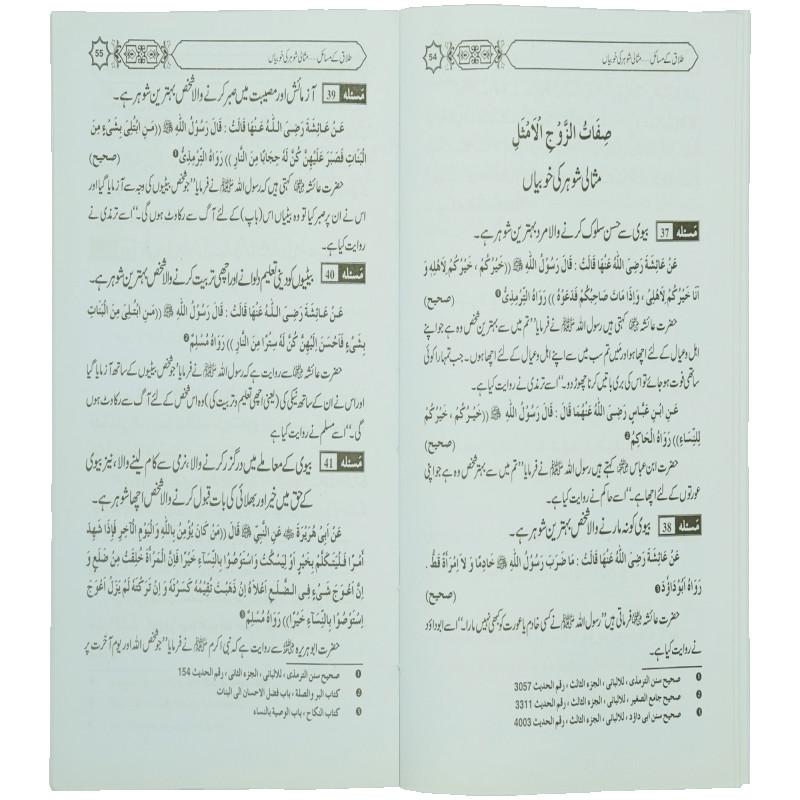 54 طلاق کے مسائل .... مثالی شوہر کی خوبیاں
صِفَاتُ الزَّوْجِ الْاَمْثَلِ
مثالی شوہر کی خوبیاں
مَسئلہ 37 بیوی سے حسن سلوک کرنے والا مرد بہترین شوہر ہے۔
عَنْ عَائِشَةَ رَضِيَ اللّٰهُ عَنْهَا قَالَتْ : قَالَ رَسُوْلُ اللّٰهِ ﷺ ((خَيْرُكُمْ ، خَيْرُكُمْ لِاَهْلِهٖ وَ
اَنَا خَيْرُكُمْ لِاَهْلِيْ ، وَاِذَا مَاتَ صَاحِبُكُمْ فَدَعُوْهُ )) رَوَاهُ التِّرْمِذِيُّ ❶ (صحیح)
حضرت عائشہ رضی اللہ عنہا کہتی ہیں رسول اللہ ﷺ نے فرمایا ”تم میں سے بہترین شخص وہ ہے جو اپنے
اہل و عیال کے لئے اچھا ہو اور میں تم سب میں سے اپنے اہل و عیال کے لئے اچھا ہوں۔ جب تمہارا کوئی
ساتھی فوت ہو جائے تو اس کی بری باتیں کرنا چھوڑ دو۔“ اسے ترمذی نے روایت کیا ہے۔
عَنِ ابْنِ عَبَّاسٍ رَضِيَ اللّٰهُ عَنْهُمَا قَالَ : قَالَ رَسُوْلُ اللّٰهِ ﷺ ((خَيْرُكُمْ ، خَيْرُكُمْ
لِلنِّسَاءِ)) رَوَاهُ الْحَاكِمُ ❷ (صحیح)
حضرت ابن عباس رضی اللہ عنہما کہتے ہیں رسول اللہ ﷺ نے فرمایا ”تم میں سے بہتر شخص وہ ہے جو اپنی
عورتوں کے لئے اچھا ہے۔“ اسے حاکم نے روایت کیا ہے۔
مَسئلہ 38 بیوی کو نہ مارنے والا شخص بہترین شوہر ہے۔
عَنْ عَائِشَةَ رَضِيَ اللّٰهُ عَنْهَا قَالَتْ : مَا ضَرَبَ رَسُوْلُ اللّٰهِ ﷺ خَادِمًا وَ لاَ اِمْرَاَةً قَطُّ .
رَوَاهُ اَبُوْدَاؤُدَ ❸ (صحیح)
حضرت عائشہ رضی اللہ عنہا فرماتی ہیں ”رسول اللہ ﷺ نے کسی خادم یا عورت کو کبھی نہیں مارا۔“ اسے ابو داؤد
نے روایت کیا ہے۔
❶ صحيح سنن الترمذى ، للالبانى ، الجزء الثالث ، رقم الحديث 3057
❷ صحيح جامع الصغير ، للالبانى ، الجزء الثالث ، رقم الحديث 3311
❸ صحيح سنن ابى داؤد ، للالبانى ، الجزء الثالث ، رقم الحديث 4003
55 طلاق کے مسائل .... مثالی شوہر کی خوبیاں
مَسئلہ 39 آزمائش اور مصیبت میں صبر کرنے والا شخص بہترین شوہر ہے۔
عَنْ عَائِشَةَ رَضِيَ اللّٰهُ عَنْهَا قَالَتْ : قَالَ رَسُوْلُ اللّٰهِ ﷺ ((مَنِ ابْتُلِيَ بِشَيْءٍ مِنَ
الْبَنَاتِ فَصَبَرَ عَلَيْهِنَّ كُنَّ لَهُ حِجَابًا مِنَ النَّارِ )) رَوَاهُ التِّرْمِذِيُّ ❶ (صحیح)
حضرت عائشہ رضی اللہ عنہا کہتی ہیں کہ رسول اللہ ﷺ نے فرمایا ”جو شخص بیٹیوں کی وجہ سے آزمایا گیا اور
اس نے ان پر صبر کیا تو وہ بیٹیاں اس (باپ) کے لئے آگ سے رکاوٹ ہوں گی۔“ اسے ترمذی نے
روایت کیا ہے۔
مَسئلہ 40 بیٹیوں کو دینی تعلیم دلوانے اور اچھی تربیت کرنے والا شخص بہترین شوہر ہے۔
عَنْ عَائِشَةَ رَضِيَ اللّٰهُ عَنْهَا قَالَتْ : قَالَ رَسُوْلُ اللّٰهِ ﷺ ((مَنِ ابْتُلِيَ مِنَ الْبَنَاتِ
بِشَيْءٍ فَاَحْسَنَ اِلَيْهِنَّ كُنَّ لَهُ سِتْرًا مِنَ النَّارِ )) رَوَاهُ مُسْلِمٌ ❷
حضرت عائشہ رضی اللہ عنہا سے روایت ہے کہ رسول اللہ ﷺ نے فرمایا ”جو شخص بیٹیوں کے ساتھ آزمایا گیا
اور اس نے ان کے ساتھ نیکی کی (یعنی اچھی تعلیم و تربیت کی) وہ اس شخص کے لئے آگ سے رکاوٹ ہوں
گی۔“ اسے مسلم نے روایت کیا ہے
مَسئلہ 41 بیوی کے معاملے میں درگزر کرنے والا، نرمی سے کام لینے والا، نیز بیوی
کے حق میں خیر اور بھلائی کی بات قبول کرنے والا شخص اچھا شوہر ہے۔
عَنْ اَبِيْ هُرَيْرَةَ ؓ عَنِ النَّبِيِّ ﷺ قَالَ ((مَنْ كَانَ يُؤْمِنُ بِاللّٰهِ وَالْيَوْمِ الْآخِرِ فَاِذَا شَهِدَ
اَمْرًا فَلْيَتَكَلَّمْ بِخَيْرٍ اَوْ لِيَسْكُتْ وَاسْتَوْصُوْا بِالنِّسَآءِ خَيْرًا فَاِنَّ الْمَرْاَةَ خُلِقَتْ مِنْ ضِلَعٍ وَ
اِنَّ اَعْوَجَ شَيْءٍ فِي الضِّلَعِ اَعْلَاهُ اِنْ ذَهَبْتَ تُقِيْمُهُ كَسَرْتَهُ وَ اِنْ تَرَكْتَهُ لَمْ يَزَلْ اَعْوَجَ
اِسْتَوْصُوْا بِالنِّسَآءِ خَيْرًا)) رَوَاهُ مُسْلِمٌ ❸
حضرت ابو ہریرہ رضی اللہ عنہ سے روایت ہے کہ نبی اکرم ﷺ نے فرمایا ”جو شخص اللہ اور یوم آخرت پر
❶ صحيح سنن الترمذى ، للالبانى ، الجزء الثانى ، رقم الحديث 154
❷ كتاب البر والصلة ، باب فضل الاحسان الى البنات
❸ كتاب النكاح ، باب الوصية بالنساء